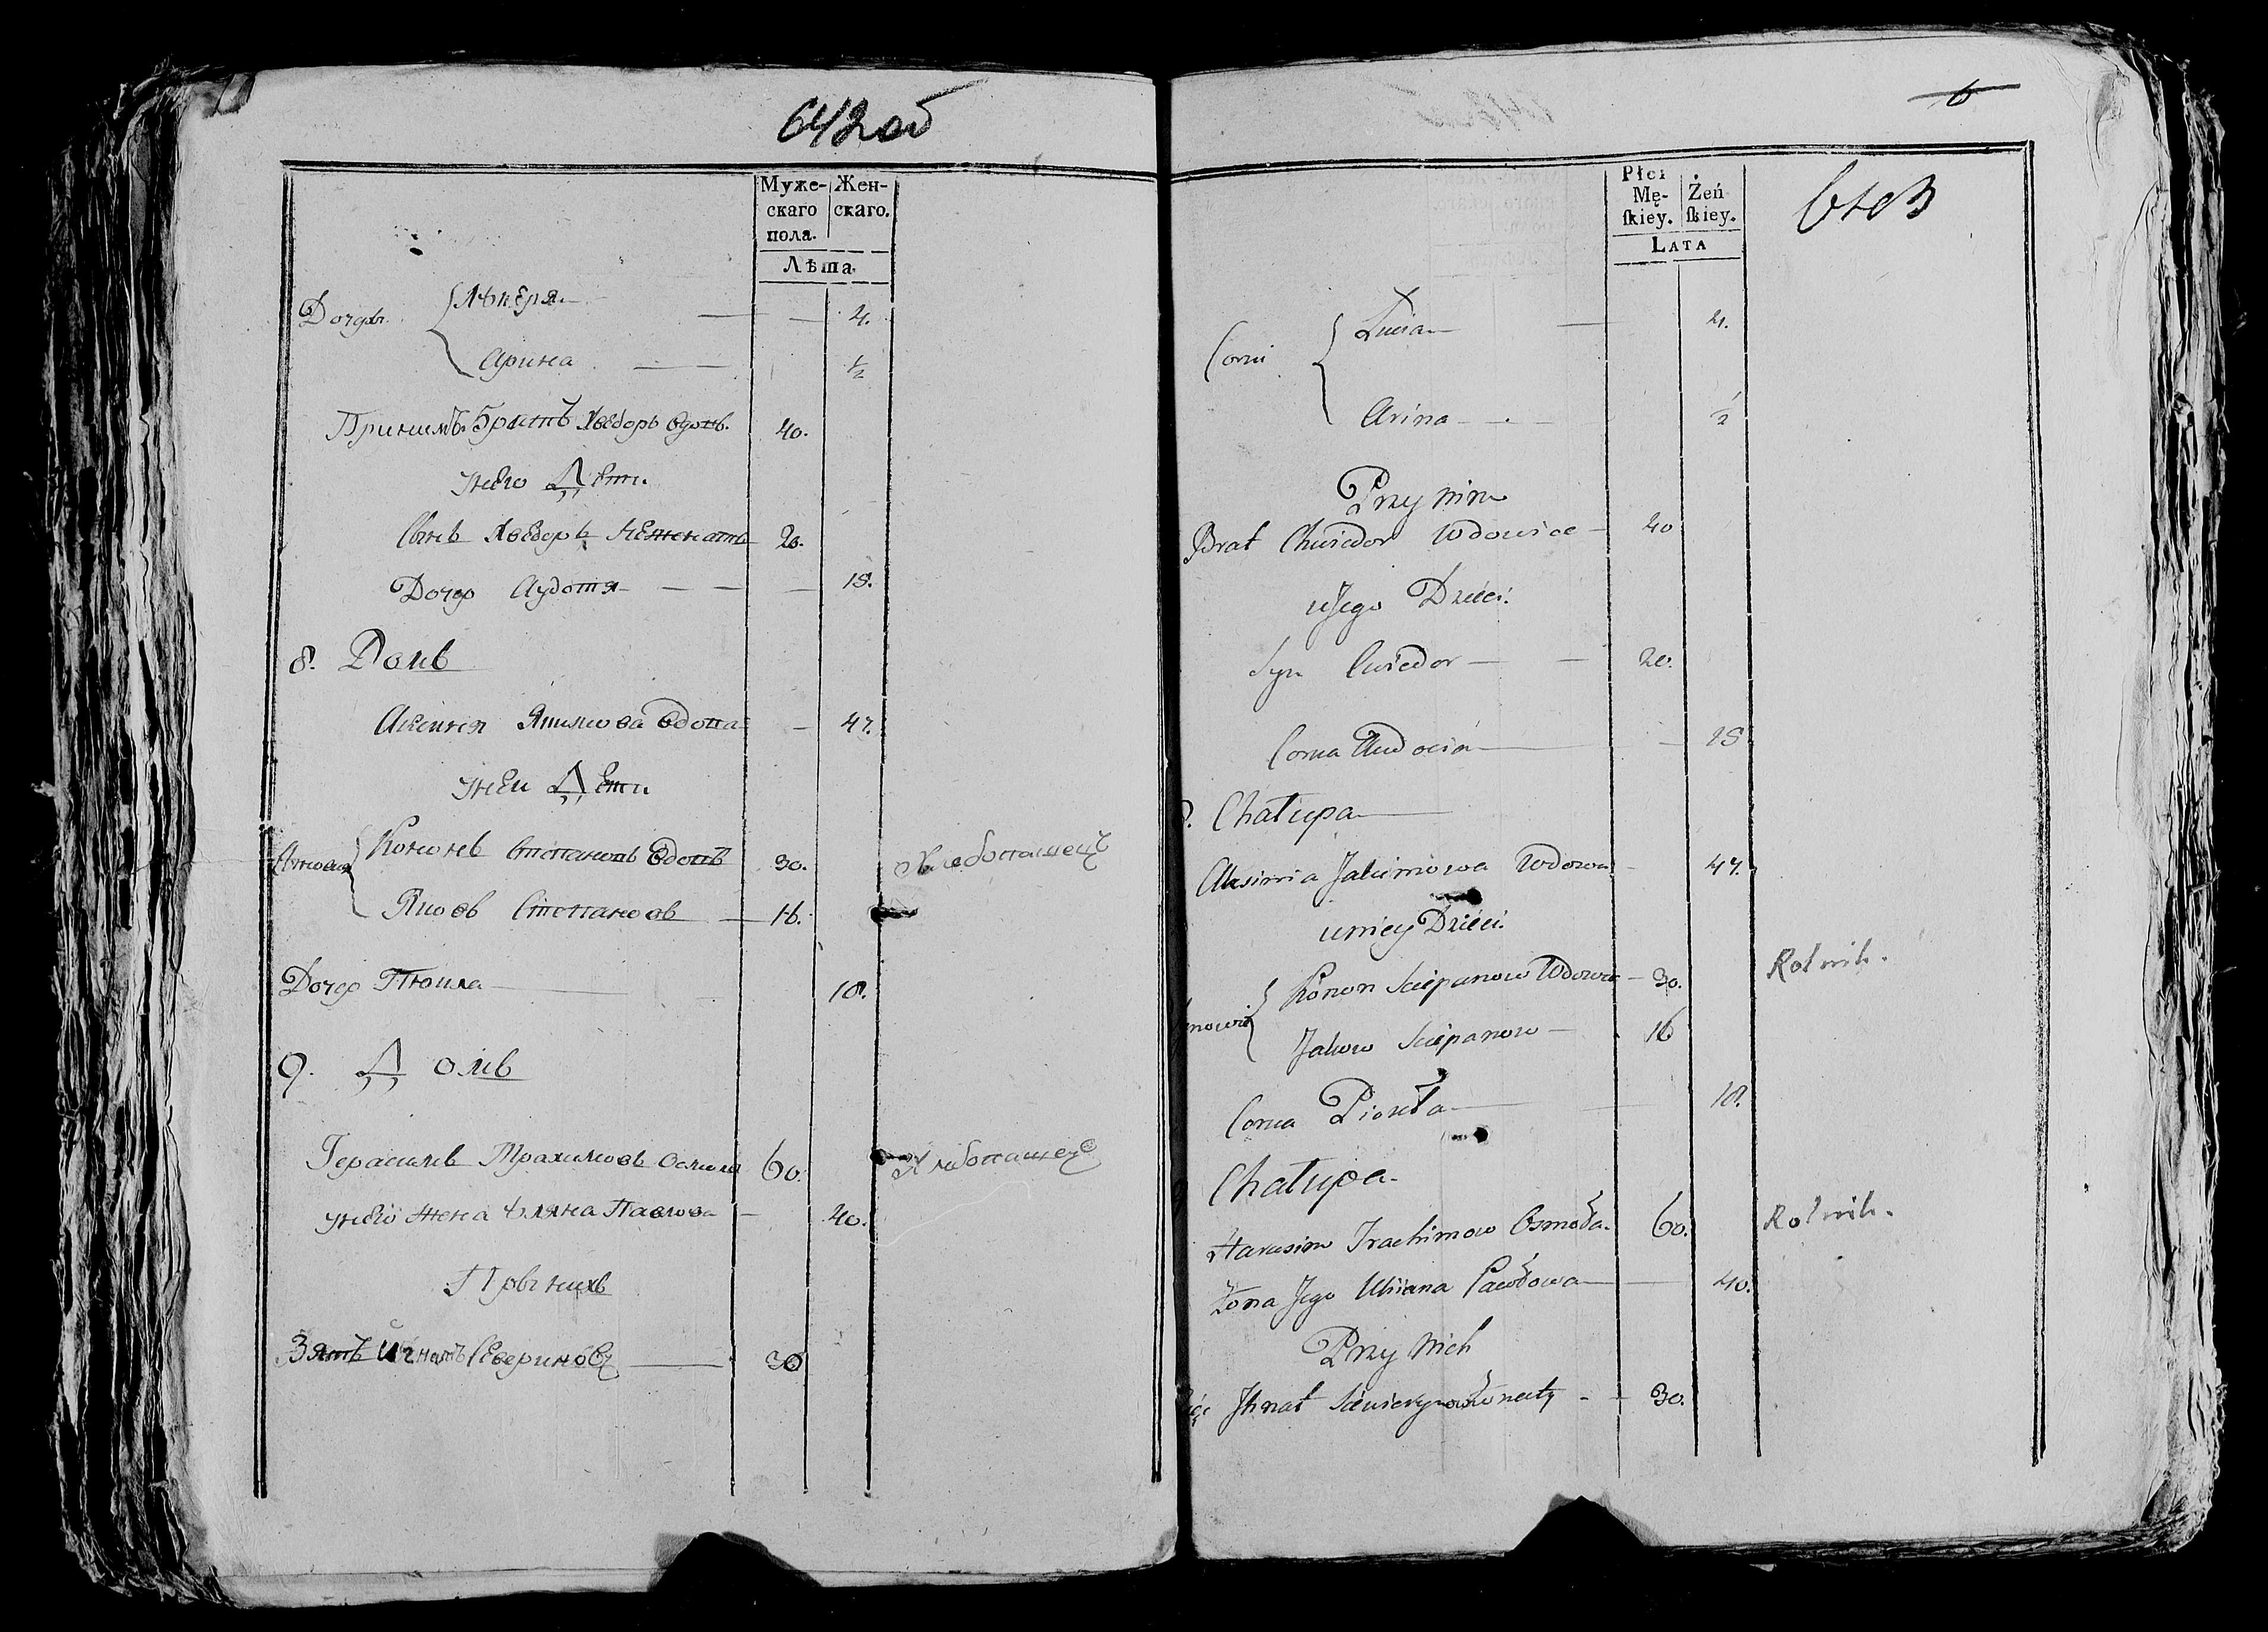 642 об
Муже-
скаго
пола.
Жен-
скаго.
Лѣта.
Дочери
Арина ½
4.
При нимъ Братъ Хведоръ Вдовъ. 40.
унего Дѣти.
Сынъ Хведоръ Неженатъ 20.
Дочь Аудотя 18.
8. Домъ
Аксиния Якимова Вдова 47.
уней Дѣти.
Сыновья
Кононъ Степановъ Вдовъ 30. Хлебопашецъ
Яковъ Степановъ 16.
Дочь 18.
9. Домъ
Герасимъ Трахимовъ Осмола 60. Хлебопашецъ
унего жена Уляна Павлова 40.
При нихъ
Зять Игнатъ Севериновъ 30
6
643
Płci
Mę-
skiey.
Żeń
skiey.
LATA
Corki
Lucia 4.
Arina ½
Przy nim
Brat Chwiedor Wdowiec 40
uJego Dzieci.
Syn Cwiedor 20.
Corka Audocia 18
8. Chałupa
Aksinia Jakimowa Wdowa 47.
uniey Dzieci.
Konon Sciepanow Wdowiec 30. Rolnik.
Jakow Sciepanow 16
Corka 18.
Chałupa
Harasim Trachimow Osmoła 60. Rolnik.
Żona Jego Uliana Pawłowa 40.
Przy Nich
Jhnat Siewierynow Żonaty 30.